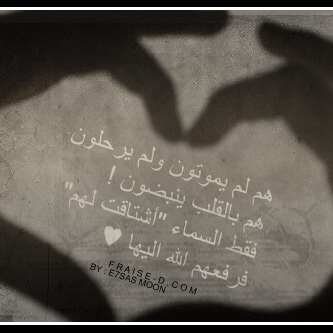 هم لم يموتون ولم يرحلون
هم بالقلب ينبضون !
فقط السماء "أشتاقت لهم"
فرفعهم الله اليها ♥
FRAISE-D.COM
BY : E7SAS MOON